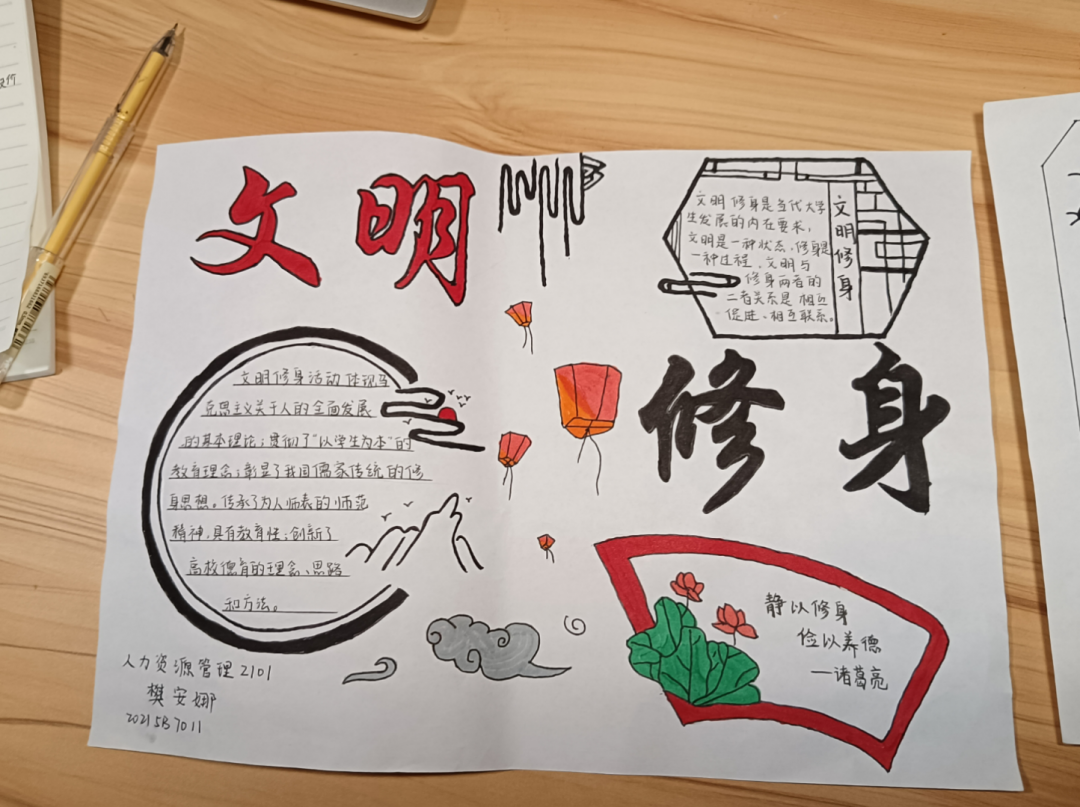 文明
文明修身是当代大学
生发展的内在要求，
文明是一种状态，修身是
一种过程，文明与
修身两者的
二者关系是相近
促进、相互联系。
文明修身
文明修身活动体现马
克思主义关于人的全面发展
的基本理论；贯彻了“以学生为本”的
教育理念；彰显了我国儒家传统的修
身思想。传承了为人师表的师范
精神，具有教育性；创新了
高校德育的理念、思路
和方法。
修身
静以修身
俭以养德
—诸葛亮
人力资源管理2101
樊安娜
20215B7011